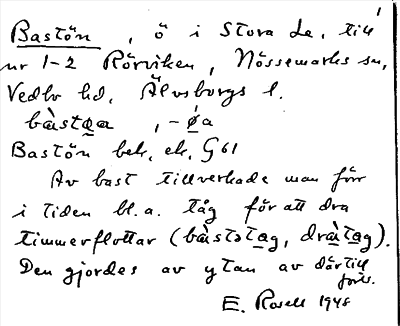 Bastön, ö i Stora Le, till
nr 1-2 Rörviken, Nössemarks sn,
Vedbo hd, Älvsborgs l.
bàstøa, -ǿa
Bastön bek, ek, G 61
Av bast tillverkade man förr
i tiden bl.a. tåg för att dra
timmerflottar (bàstətag, dràtag).
Den gjordes av ytan av därtill
E. Rosell 1948